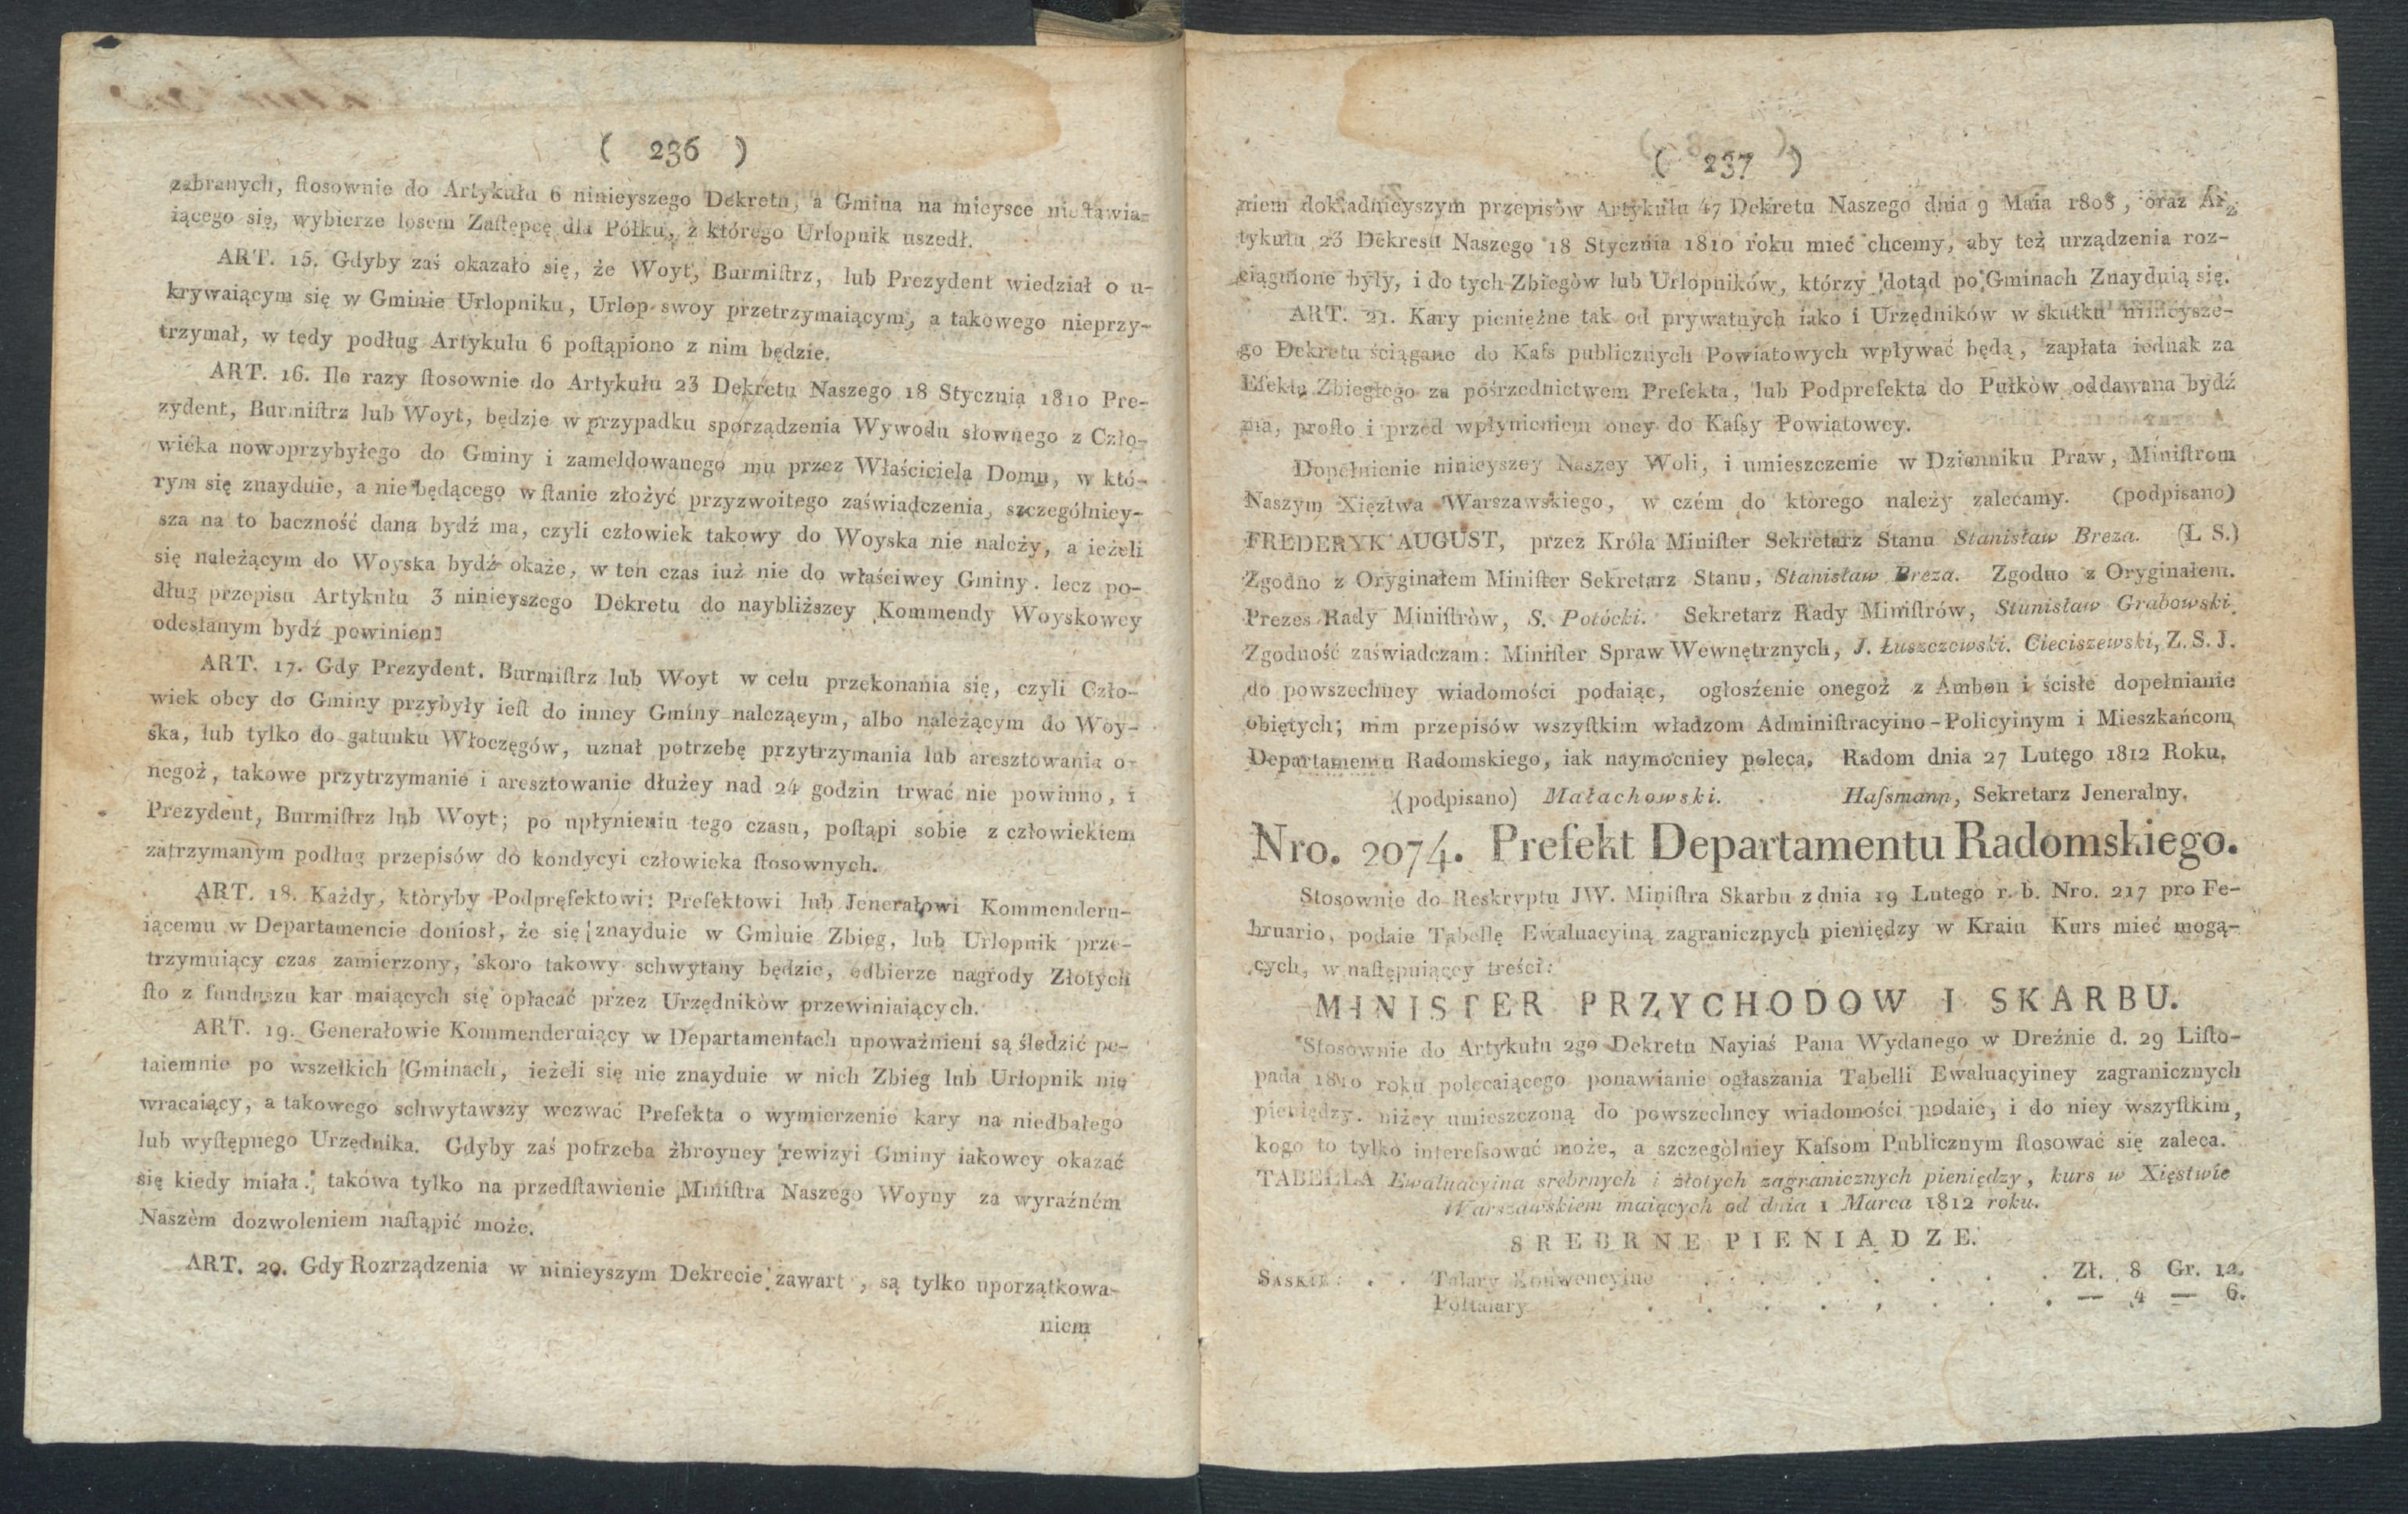 ( 236 )
zabranych, ſtosownie do Artykułu 6 ninieyszego Dekretu, a Gmina na mieysce nieſtawia-
iącego się, wybierze losem Zaſtępcę dla Półku, z którego Urlopnik uszedł.
ART. 15. Gdyby zaś okazało się, że Woyt, Burmiſtrz, lub Prezydent wiedział o u-
krywaiącym się w Gminie Urlopniku, Urlop swoy przetrzymaiącym, a takowego nieprzy-
trzymał, w tedy podług Artykułu 6 poſtąpiono z nim będzie.
ART. 16. Ile razy ſtosownie do Artykułu 23 Dekretu Naszego 18 Stycznia 1810 Pre-
zydent, Burmiſtrz lub Woyt, będzie w przypadku sporządzenia Wywodu słownego z Czło-
wieka nowoprzybyłego do Gminy i zameldowanego mu przez Właściciela Domu, w któ-
rym się znayduie, a nie będącego w ſtanie złożyć przyzwoitego zaświadczenia, szczególniey-
sza na to baczność dana bydź ma, czyli człowiek takowy do Woyska nie należy, a ieżeli
się należącym do Woyska bydź okaże, w ten czas iuż nie do właściwey Gminy. lecz po-
dług przepisu Artykułu 3 ninieyszego Dekretu do naybliższey Kommendy Woyskowey
odesłanym bydź powinien.
ART. 17. Gdy Prezydent. Burmiſtrz lub Woyt w celu przekonania się, czyli Czło-
wiek obcy do Gminy przybyły ieſt do inney Gminy nalczącym, albo należącym do Woy-
ska, lub tylko do gatunku Włoczęgów, uznał potrzebę przytrzymania lub aresztowania o-
negoż, takowe przytrzymanie i aresztowanie dłużey nad 24 godzin trwać nie powinno, i
Prezydent, Burmiſtrz lub Woyt; po upłynieniu tego czasu, poſtąpi sobie z człowiekiem
zatrzymanym podług przepisów do kondycyi człowieka ſtosownych.
ART. 18. Każdy, któryby Podprefektowi: Prefektowi lub Jenerałowi Kommenderu-
iącemu w Departamencie doniosł, że się znayduie w Gminie Zbieg, lub Urlopnik prze-
trzymuiący czas zamierzony, skoro takowy schwytany będzie, odbierze nagrody Złotych
ſto z funduszu kar maiących się opłacać przez Urzędników przewiniaiących.
ART. 19. Generałowie Kommenderuiący w Departamentach upoważnieni są śledzić po-
taiemnie po wszelkich Gminach, ieżeli się nie znayduie w nich Zbieg lub Urlopnik nie
wracaiący, a takowego schwytawszy wezwać Prefekta o wymierzenie kary na niedbałego
lub wyſtępnego Urzędnika. Gdyby zaś potrzeba zbroyney rewizyi Gminy iakowey okazać
się kiedy miała: takowa tylko na przedſtawienie Miniſtra Naszego Woyny za wyraźném
Naszém dozwoleniem naſtąpić może.
ART. 20. Gdy Rozrządzenia w ninieyszym Dekrecie zawart , są tylko uporzątkowa-
niem
( 237 )
niem dokładnieyszym przepisów Artykułu 47 Dekretu Naszego dnia 9 Maia 1808, oraz Ar-
tykułu 23 Dekresu Naszego 18 Stycznia 1810 roku mieć chcemy, aby też urządzenia roz-
ciągnione były, i do tych Zbiegów lub Urlopników, którzy dotąd po Gminach Znayduią się.
ART. 21. Kary pieniężne tak od prywatnych iako i Urzędników w skutku ninieysze-
go Dekretu ściągane do Kaſs publicznych Powiatowych wpływać będą, zapłata iednak za
Efekta Zbiegłego za pośrzednictwem Prefekta, lub Podprefekta do Pułków oddawana bydź
ma, proſto i przed wpłynieniem oney do Kaſsy Powiatowey.
Dopełnienie ninieyszey Naszey Woli, i umieszczenie w Dzienniku Praw, Miniſtrom
Naszym Xięztwa Warszawskiego, w czém do którego należy zalecamy. (podpisano)
FREDERYK AUGUST, przez Króla Miniſter Sekretarz Stanu Stanisław Breza. (L S.)
Zgodno z Oryginałem Miniſter Sekretarz Stanu, Stanisław Breza. Zgodno z Oryginałem.
Prezes Rady Miniſtròw, S. Potócki. Sekretarz Rady Miniſtrów, Stanisław Grabowski.
Zgodność zaświadczam: Miniſter Spraw Wewnętrznych, J. Łuszczewski. Cieciszewski, Z. S. J.
do powszechney wiadomości podaiąc, ogłoszenie onegoż z Ambon i ścisłe dopełnianie
obiętych; nim przepisów wszyſtkim władzom Adminiſtracyino-Policyinym i Mieszkańcom,
Departamentu Radomskiego, iak naymocniey poleca. Radom dnia 27 Lutego 1812 Roku.
(podpisano) Małachowski. Haſsmann, Sekretarz Jeneralny.
Nro. 2074. Prefekt Departamentu Radomskiego.
Stosownie do Reskryptu JW. Miniſtra Skarbu z dnia 19 Lutego r. b. Nro. 217 pro Fe-
bruario, podaie Tabellę Ewaluacyiną zagranicznych pieniędzy w Kraiu Kurs mieć mogą-
cych, w naſtępuiącey treści:
MINISTER PRZYCHODOW I SKARBU.
Stosownie do Artykułu 2go Dekretu Nayiaś Pana Wydanego w Dreźnie d. 29 Liſto-
pada 1810 roku polecaiącego ponawianie ogłaszania Tabelli Ewaluacyiney zagranicznych
pieniędzy. niżey umieszczoną do powszechney wiadomości podaie, i do niey wszyſtkim,
kogo to tylko intereſsować może, a szczególniey Kaſsom Publicznym ſtosować się zaleca.
TABELLA Ewaluacyina srebrnych i złotych zagranicznych pieniędzy, kurs w Xięstwie
Warszawskiem maiących od dnia 1 Marca 1812 roku.
SREBRNE PIENIĄDZE.
SASKIE: . . Talary Konwencyine . . . . . . . Zł. 8 Gr. 12.
Półtalary . . . . . . . . — 4 — 6.